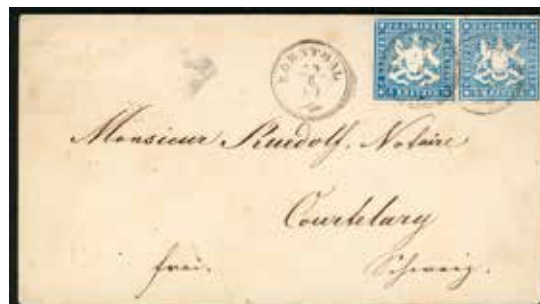 KORNTHAL
Monsieur Ruedolf. Notaire
Courtelary
frei.
Schweiz.